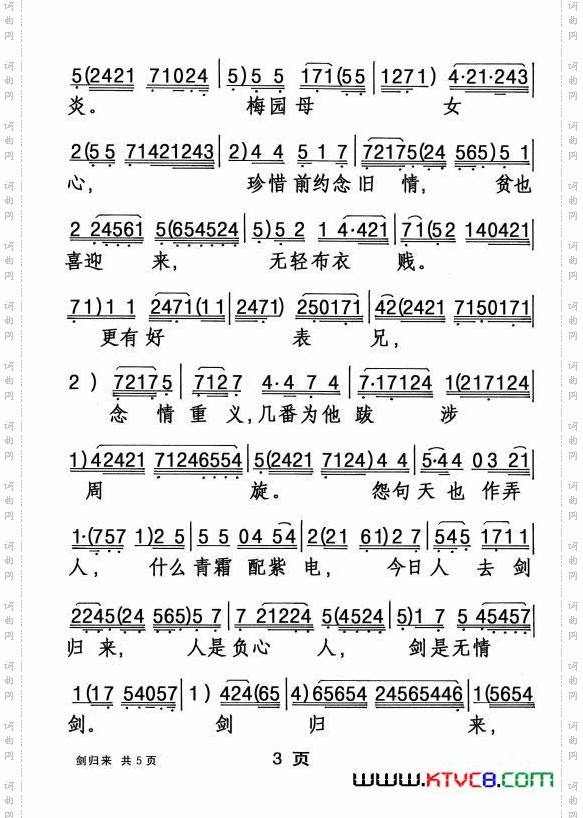 5(2421 71024 | 5)5 5 171(55 | 1271) 4·21·243 |
炎。 梅园母 女
2(55 71421243 | 2)4 4 5 1 7 | 72175(24 565)5 1 |
心, 珍惜前约念旧 情, 贫也
2 24561 5(654524 | 5)5 2 1 4·421 | 71(52 140421 |
喜迎 来, 无轻布衣 贱。
71)1 1 2471(11 | 2471) 250171 | 42(2421 7150171 |
更有好 表 兄,
2 ) 72175 | 7127 4·4 7 4 | 7·17124 1(217124 |
念 情重义,几番为他 跋 涉
1)42421 71246554 | 5(2421 7124)4 4 | 5·44 03 21 |
周 旋。 怨句天也 作弄
1·(757 1)2 5 | 5 5 04 54 | 2(21 61)2 7 | 545 1711 |
人, 什么青霜 配紫 电, 今日人 去 剑
2245(24 565)5 7 | 7 21224 5(4524 | 5)1 7 5 45457 |
归 来, 人是负心 人, 剑是无情
1(17 54057 | 1 ) 424(65 | 4)65654 24565446 | 1(5654
剑。 剑 归 来,
剑归来 共5页 3 页
www.KTVC8.com
词曲网